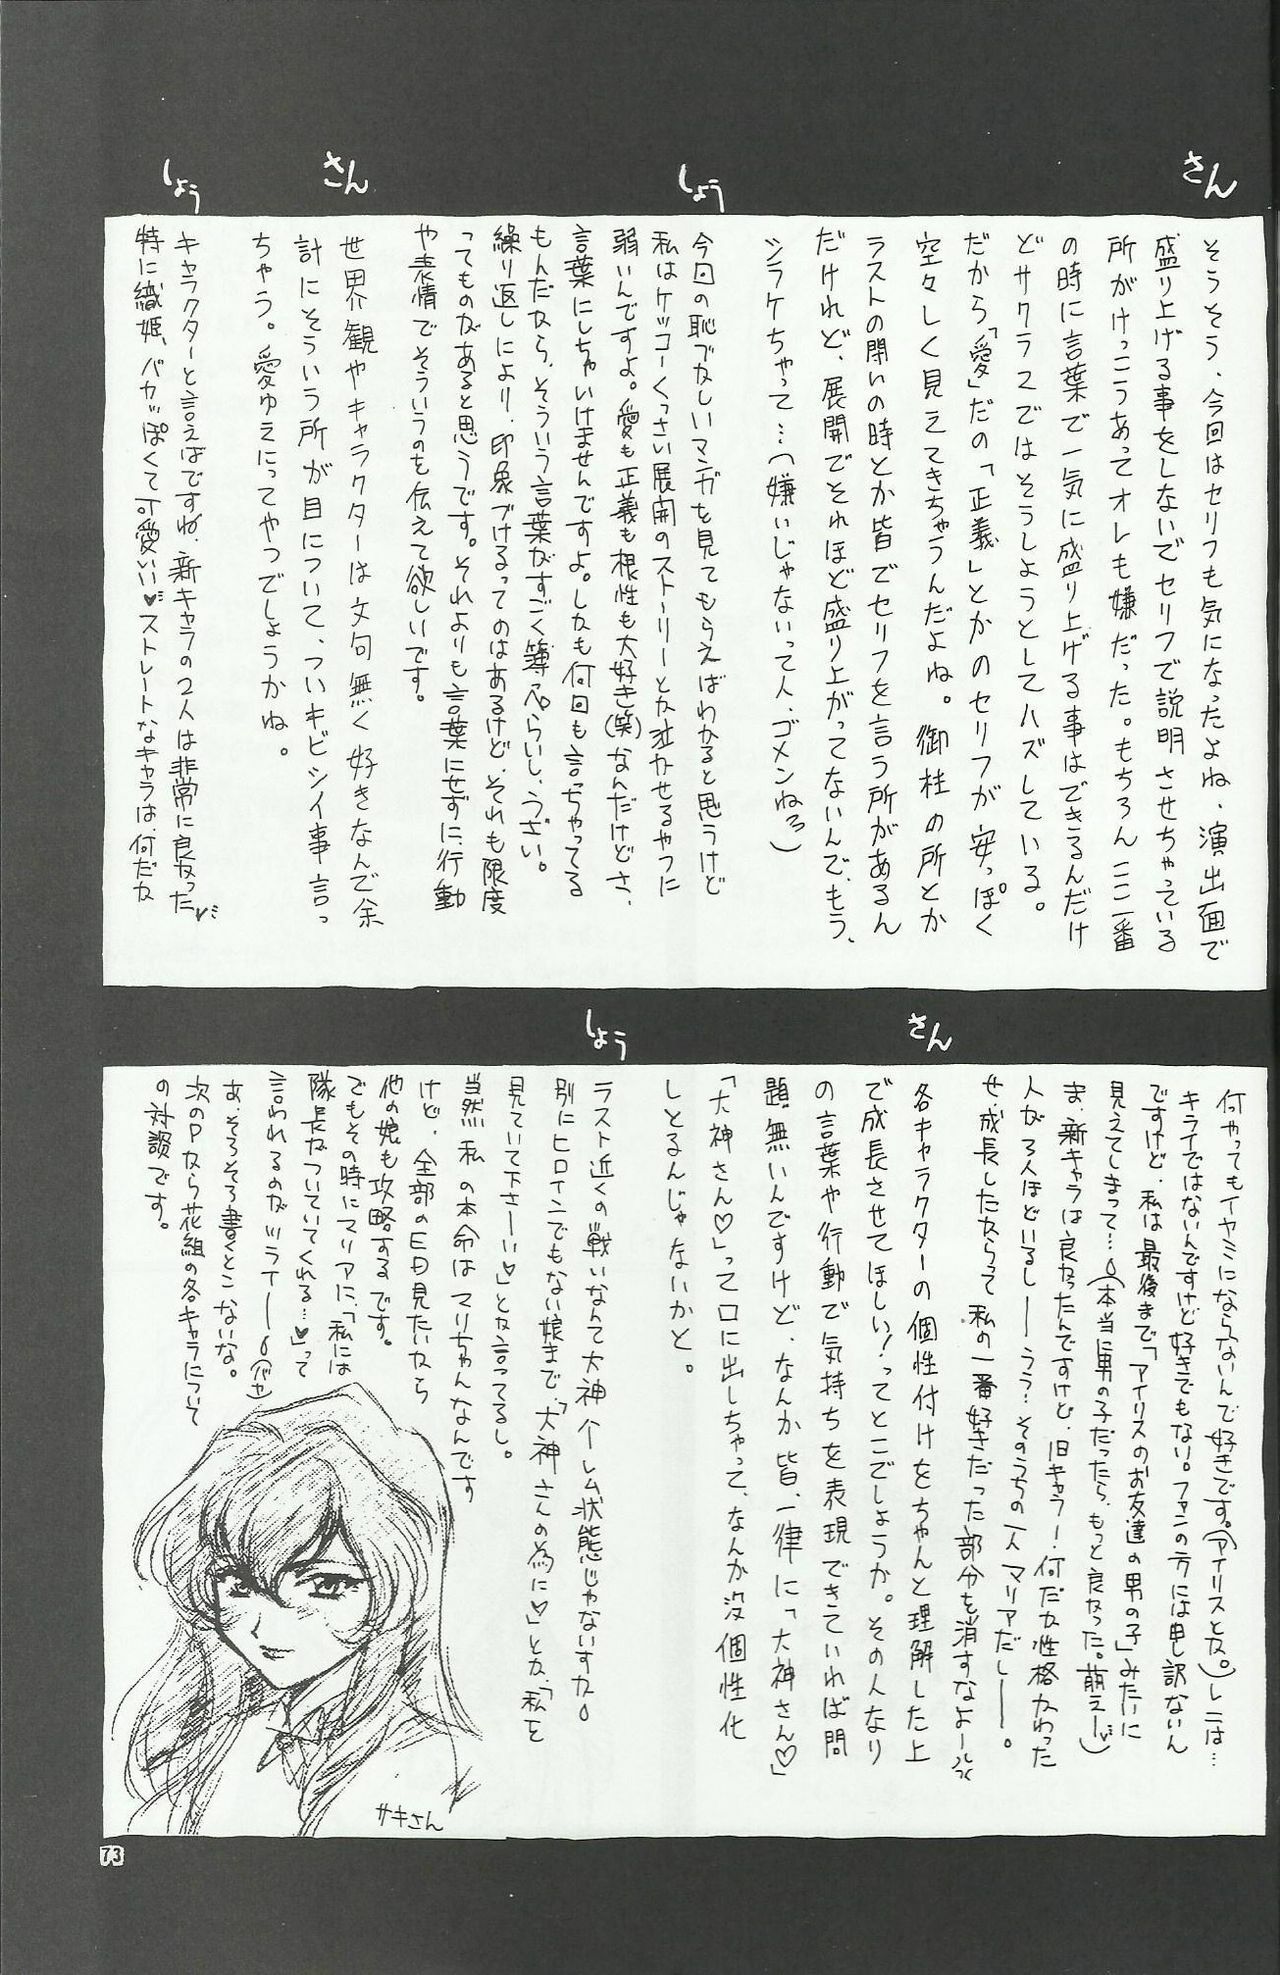 さん
そうそう、今回はセリフも気になったよね、演出面で
盛り上げる事をしないでセリフで説明させちゃっている
所がけっこうあってオレも嫌だった。もちろんここ一番
の時に言葉で一気に盛り上げる事はできるんだけ
どサクラ2ではそうしようとしてハズしている。
だから「愛」だの「正義」とかのセリフが安っぽく
空々しく見えてきちゃうんだよね。御柱の所とか
ラストの闘いの時とか皆でセリフを言う所があるん
だけれど、展開でそれほど盛り上がってないんで、もう、
シラケちゃって…(嫌いじゃないって人、ゴメンねろ)
しょう
今回の恥ずかしいマンガを見てもらえばわかると思うけど
私はケッコーくっさい展開のストーリーとか泣かせるやつに
弱いんですよ。愛も正義も根性も大好き(笑)なんだけどさ、
言葉にしちゃいけませんですよ。しかも何回も言っちゃってる
もんだから、そういう言葉がすごく薄っぺらいし、うざい。
繰り返しにより、印象づけるってのはあるけど、それも限度
ってものがあると思うです。それよりも言葉にせずに、行動
や表情でそういうのを伝えて欲しいです。
さん
世界観やキャラクターは文句無く好きなんで余
計にそういう所が目について、ついキビシイ事言っ
ちゃう。愛ゆえにってやつでしょうかね。
しょう
キャラクターと言えばですね、新キャラの2人は非常に良かった
特に織姫、バカッぽくて可愛い♥ストレートなキャラは、何だか
何やってもイヤミにならないんで好きです。(アイリスとか。)レニは…
キライではないんですけど好きでもない。ファンの方には申し訳ないん
ですけど、私は最後まで「アイリスのお友達の男の子」みたいに
見えてしまって…(本当に男の子だったら、もっと良かった。萌えー)
ま、新キャラは良かったんですけど、旧キャラー！何だか性格かわった
人が3人ほどいるしーうう？そのうちの一人マリアだしー。
せ成長したからって私の一番好きだった部分を消すなよーしくしく
さん
各キャラクターの個性付けをちゃんと理解した上
で成長させてほしい！ってとこでしょうか。その人なり
の言葉や行動で気持ちを表現できていれば問
題無いんですけど、なんか皆、一律に「大神さん♡」
「大神さん♡」って口に出しちゃって、なんか没個性化
しとるんじゃないかと。
しょう
ラスト近くの戦いなんて大神ハーレム状態じゃないすか
別にヒロインでもない娘まで、「大神さんの為に♡」とか、「私を
見ていて下さーい♡」とか言ってるし。
当然、私の本命はマリちゃんなんです
けど、全部のED見たいから
他の娘も攻略するです。
でもその時にマリアに、「私には
隊長がついていてくれる…♥」って
言われるのがツライー(バカ)
あ、そろそろ書くとこないな。
次のPから花組の各キャラについて
の対談です。
サキさん
73